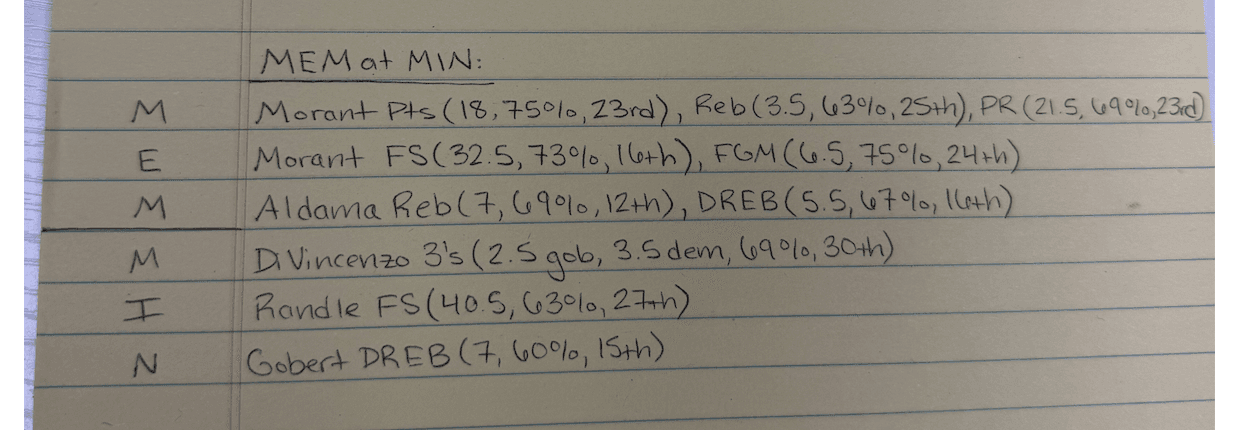 MEM at MIN:
M Morant Pts (18, 75%, 23rd), Reb (3.5, 63%, 25th), PR (21.5, 69%, 23rd)
E Morant FS (32.5, 73%, 16th), FGM (6.5, 75%, 24th)
M Aldama Reb (7, 69%, 12th), DREB (5.5, 67%, 16th)
M DiVincenzo 3's (2.5 gob, 3.5 dem, 69%, 30th)
I Randle FS (40.5, 63%, 27th)
N Gobert DREB (7, 60%, 15th)